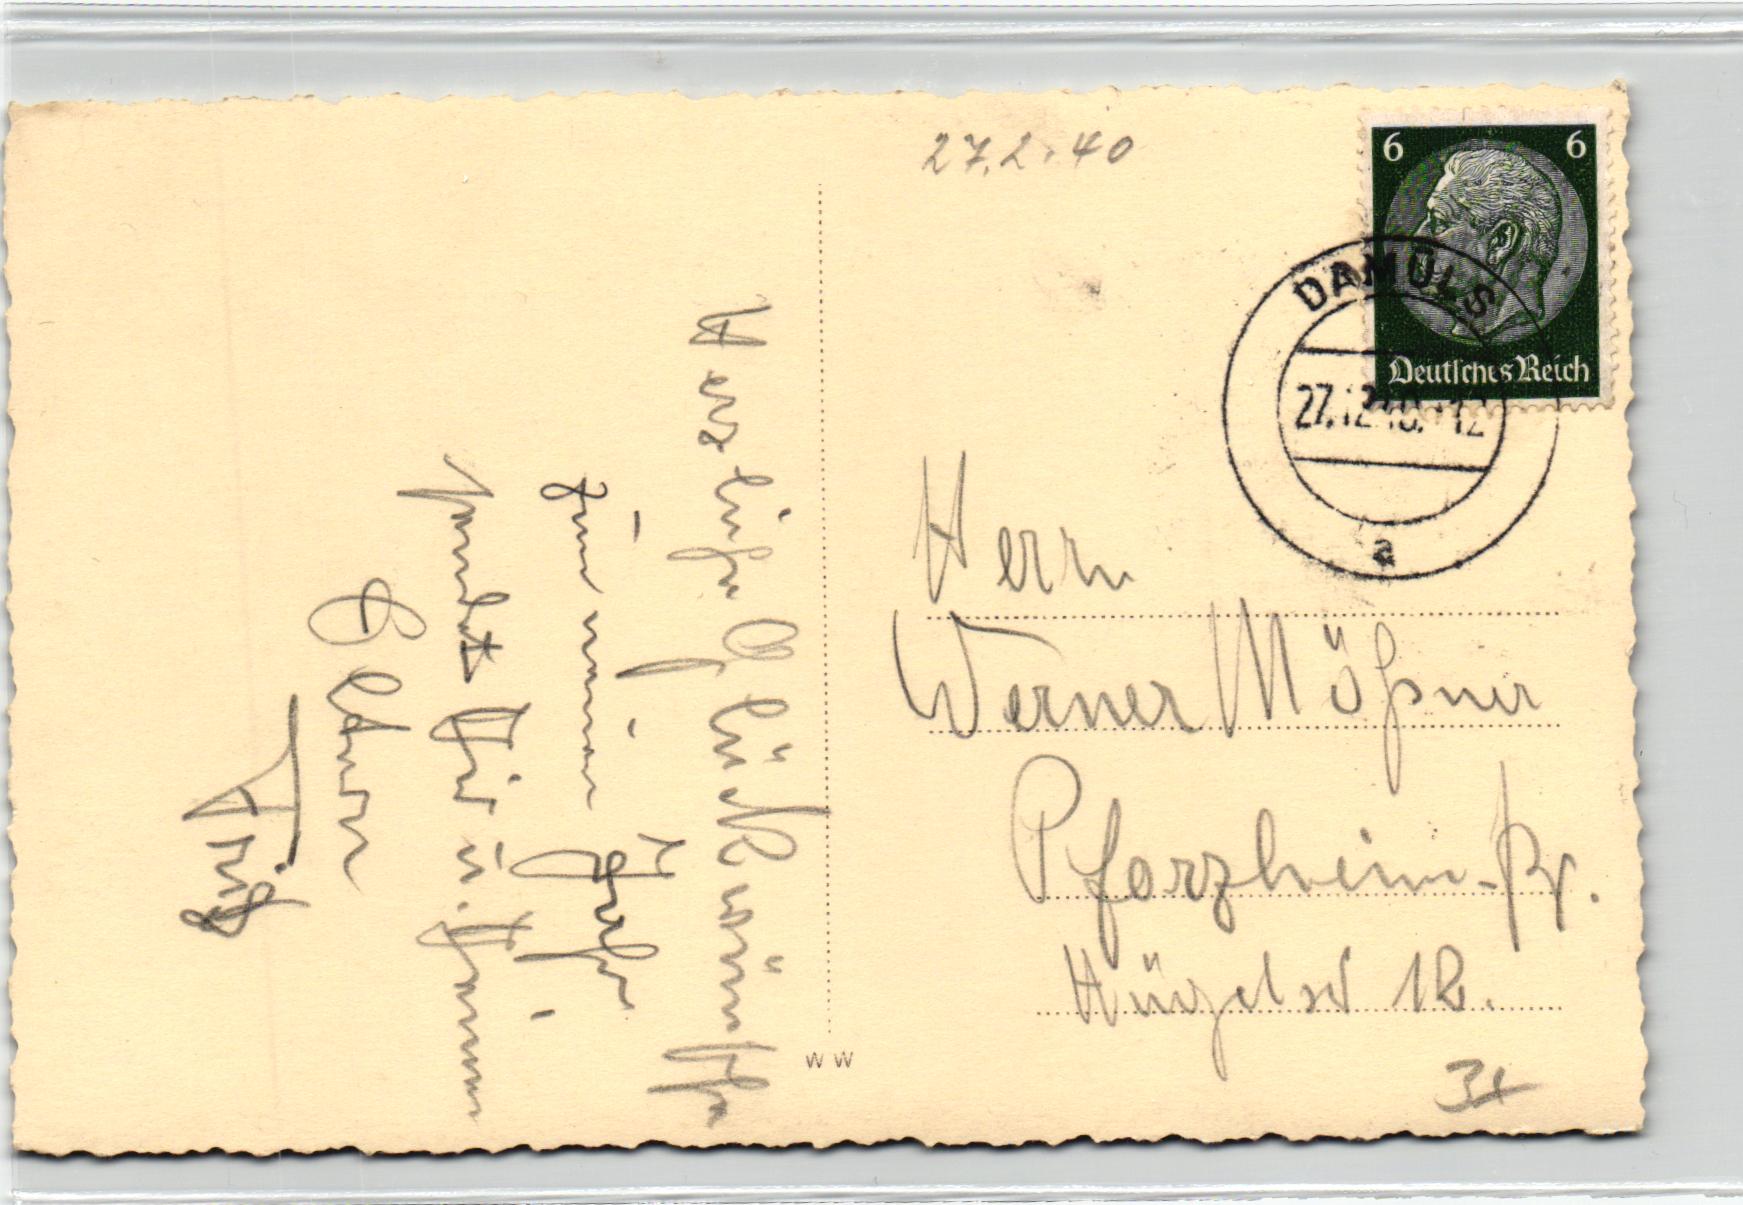 27.2.40
6 6
Deutsches Reich
DAMÜLS
27.12.40. 12
a
Herrn
Werner Mößner
Pforzheim-Br.
12.
W W
Herzliche Glückwünsche
zum neuen Jahre
sendet Dir u. Deinen
Eltern
Fritz